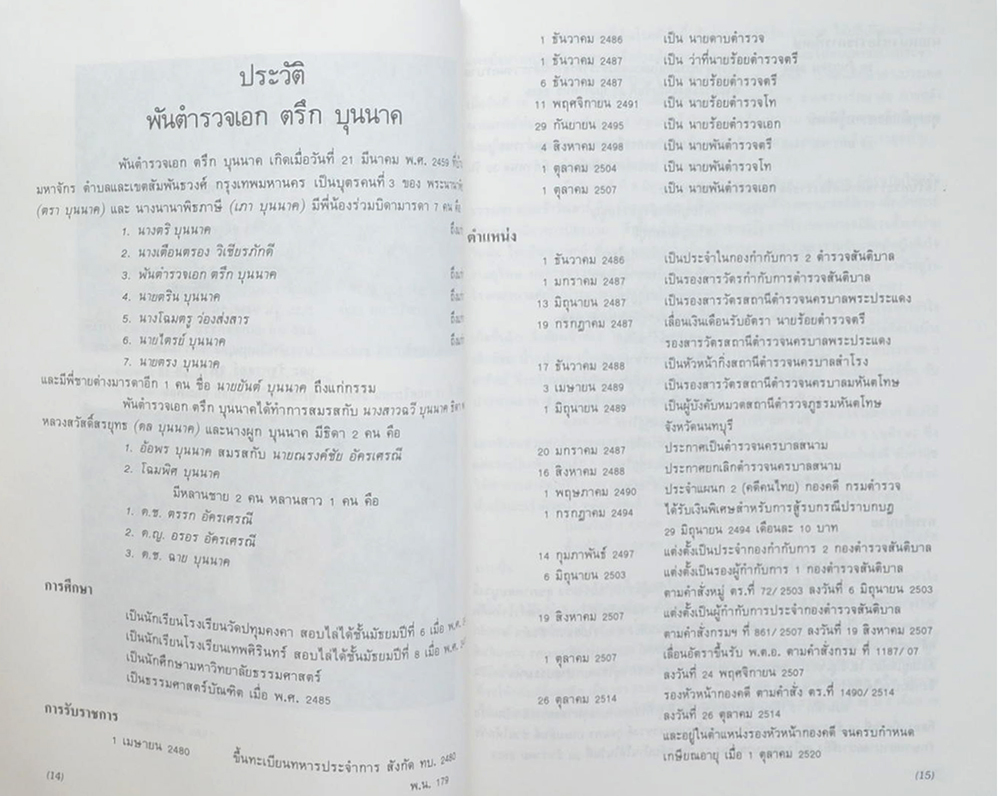 ประวัติ
พันตำรวจเอก ตรึก บุนนาค
พันตำรวจเอก ตรึก บุนนาค เกิดเมื่อวันที่ 21 มีนาคม พ.ศ. 2459
มหาจักร ตำบลและเขตสัมพันธวงศ์ กรุงเทพมหานคร เป็นบุตรคนที่ 3 ของ
(ตรา บุนนาค) และ นางนานาพิธภาษี (เภา บุนนาค) มีพี่น้องร่วมบิดามารดา 7 คน คือ
1. นางตริ บุนนาค
2. นางเตือนตรอง วิเชียรภักดี
3. พันตำรวจเอก ตรึก บุนนาค
4. นายตริน บุนนาค
5. นางโฉมตรู ว่องส่งสาร
6. นายไตรย์ บุนนาค
7. นายตรง บุนนาค
และมีพี่ชายต่างมารดาอีก 1 คน ชื่อ นายยันต์ บุนนาค ถึงแก่กรรม
พันตำรวจเอก ตรึก บุนนาคได้ทำการสมรสกับ นางสาวฉวี บุนนาค
หลวงสวัสดิ์สรยุทธ (ดล บุนนาค) และนางผูก บุนนาค มีธิดา 2 คน คือ
1. อ้อพร บุนนาค สมรสกับ นายณรงค์ชัย อัครเศรณี
2. โฉมพิศ บุนนาค
มีหลานชาย 2 คน หลานสาว 1 คน คือ
1. ด.ช. ตรรก อัครเศรณี
2. ด.ญ. อรอร อัครเศรณี
3. ด.ช. ฉาย บุนนาค
การศึกษา
เป็นนักเรียนโรงเรียนวัดปทุมคงคา สอบไล่ได้ชั้นมัธยมปีที่ 6 เมื่อ พ.ศ.
เป็นนักเรียนโรงเรียนเทพศิรินทร์ สอบไล่ได้ชั้นมัธยมปีที่ 8 เมื่อ พ.ศ.
เป็นนักศึกษามหาวิทยาลัยธรรมศาสตร์
เป็นธรรมศาสตร์บัณฑิต เมื่อ พ.ศ. 2485
การรับราชการ
1 เมษายน 2480 ขึ้นทะเบียนทหารประจำการ สังกัด ทบ. 2480
พ.น. 179
(14)
1 ธันวาคม 2486 เป็น นายดาบตำรวจ
1 ธันวาคม 2487 เป็น ว่าที่นายร้อยตำรวจตรี
6 ธันวาคม 2487 เป็น นายร้อยตำรวจตรี
11 พฤศจิกายน 2491 เป็น นายร้อยตำรวจโท
29 กันยายน 2495 เป็น นายร้อยตำรวจเอก
4 สิงหาคม 2498 เป็น นายพันตำรวจตรี
1 ตุลาคม 2504 เป็น นายพันตำรวจโท
1 ตุลาคม 2507 เป็น นายพันตำรวจเอก
ตำแหน่ง
1 ธันวาคม 2486 เป็นประจำในกองกำกับการ 2 ตำรวจสันติบาล
1 มกราคม 2487 เป็นรองสารวัตรกำกับการตำรวจสันติบาล
13 มิถุนายน 2487 เป็นรองสารวัตรสถานีตำรวจนครบาลพระประแดง
19 กรกฎาคม 2487 เลื่อนเงินเดือนรับอัตรา นายร้อยตำรวจตรี
รองสารวัตรสถานีตำรวจนครบาลพระประแดง
17 ธันวาคม 2488 เป็นหัวหน้ากิ่งสถานีตำรวจนครบาลสำโรง
3 เมษายน 2489 เป็นรองสารวัตรสถานีตำรวจนครบาลมหันตโทษ
1 มิถุนายน 2489 เป็นผู้บังคับหมวดสถานีตำรวจภูธรมหันตโทษ
จังหวัดนนทบุรี
20 มกราคม 2487 ประกาศเป็นตำรวจนครบาลสนาม
16 สิงหาคม 2488 ประกาศยกเลิกตำรวจนครบาลสนาม
1 พฤษภาคม 2490 ประจำแผนก 2 (คดีคนไทย) กองคดี กรมตำรวจ
1 กรกฎาคม 2494 ได้รับเงินพิเศษสำหรับการสู้รบกรณีปราบกบฏ
29 มิถุนายน 2494 เดือนละ 10 บาท
14 กุมภาพันธ์ 2497 แต่งตั้งเป็นประจำกองกำกับการ 2 กองตำรวจสันติบาล
6 มิถุนายน 2503 แต่งตั้งเป็นรองผู้กำกับการ 1 กองตำรวจสันติบาล
ตามคำสั่งหมู่ ตร.ที่ 72/2503 ลงวันที่ 6 มิถุนายน 2503
19 สิงหาคม 2507 แต่งตั้งเป็นผู้กำกับการประจำกองตำรวจสันติบาล
ตามคำสั่งกรมฯ ที่ 861/2507 ลงวันที่ 19 สิงหาคม 2507
1 ตุลาคม 2507 เลื่อนอัตราขึ้นรับ พ.ต.อ. ตามคำสั่งกรม ที่ 1187/07
ลงวันที่ 24 พฤศจิกายน 2507
26 ตุลาคม 2514 รองหัวหน้ากองคดี ตามคำสั่ง ตร.ที่ 1490/2514
ลงวันที่ 26 ตุลาคม 2514
และอยู่ในตำแหน่งรองหัวหน้ากองคดี จนครบกำหนด
เกษียณอายุ เมื่อ 1 ตุลาคม 2520
(15)